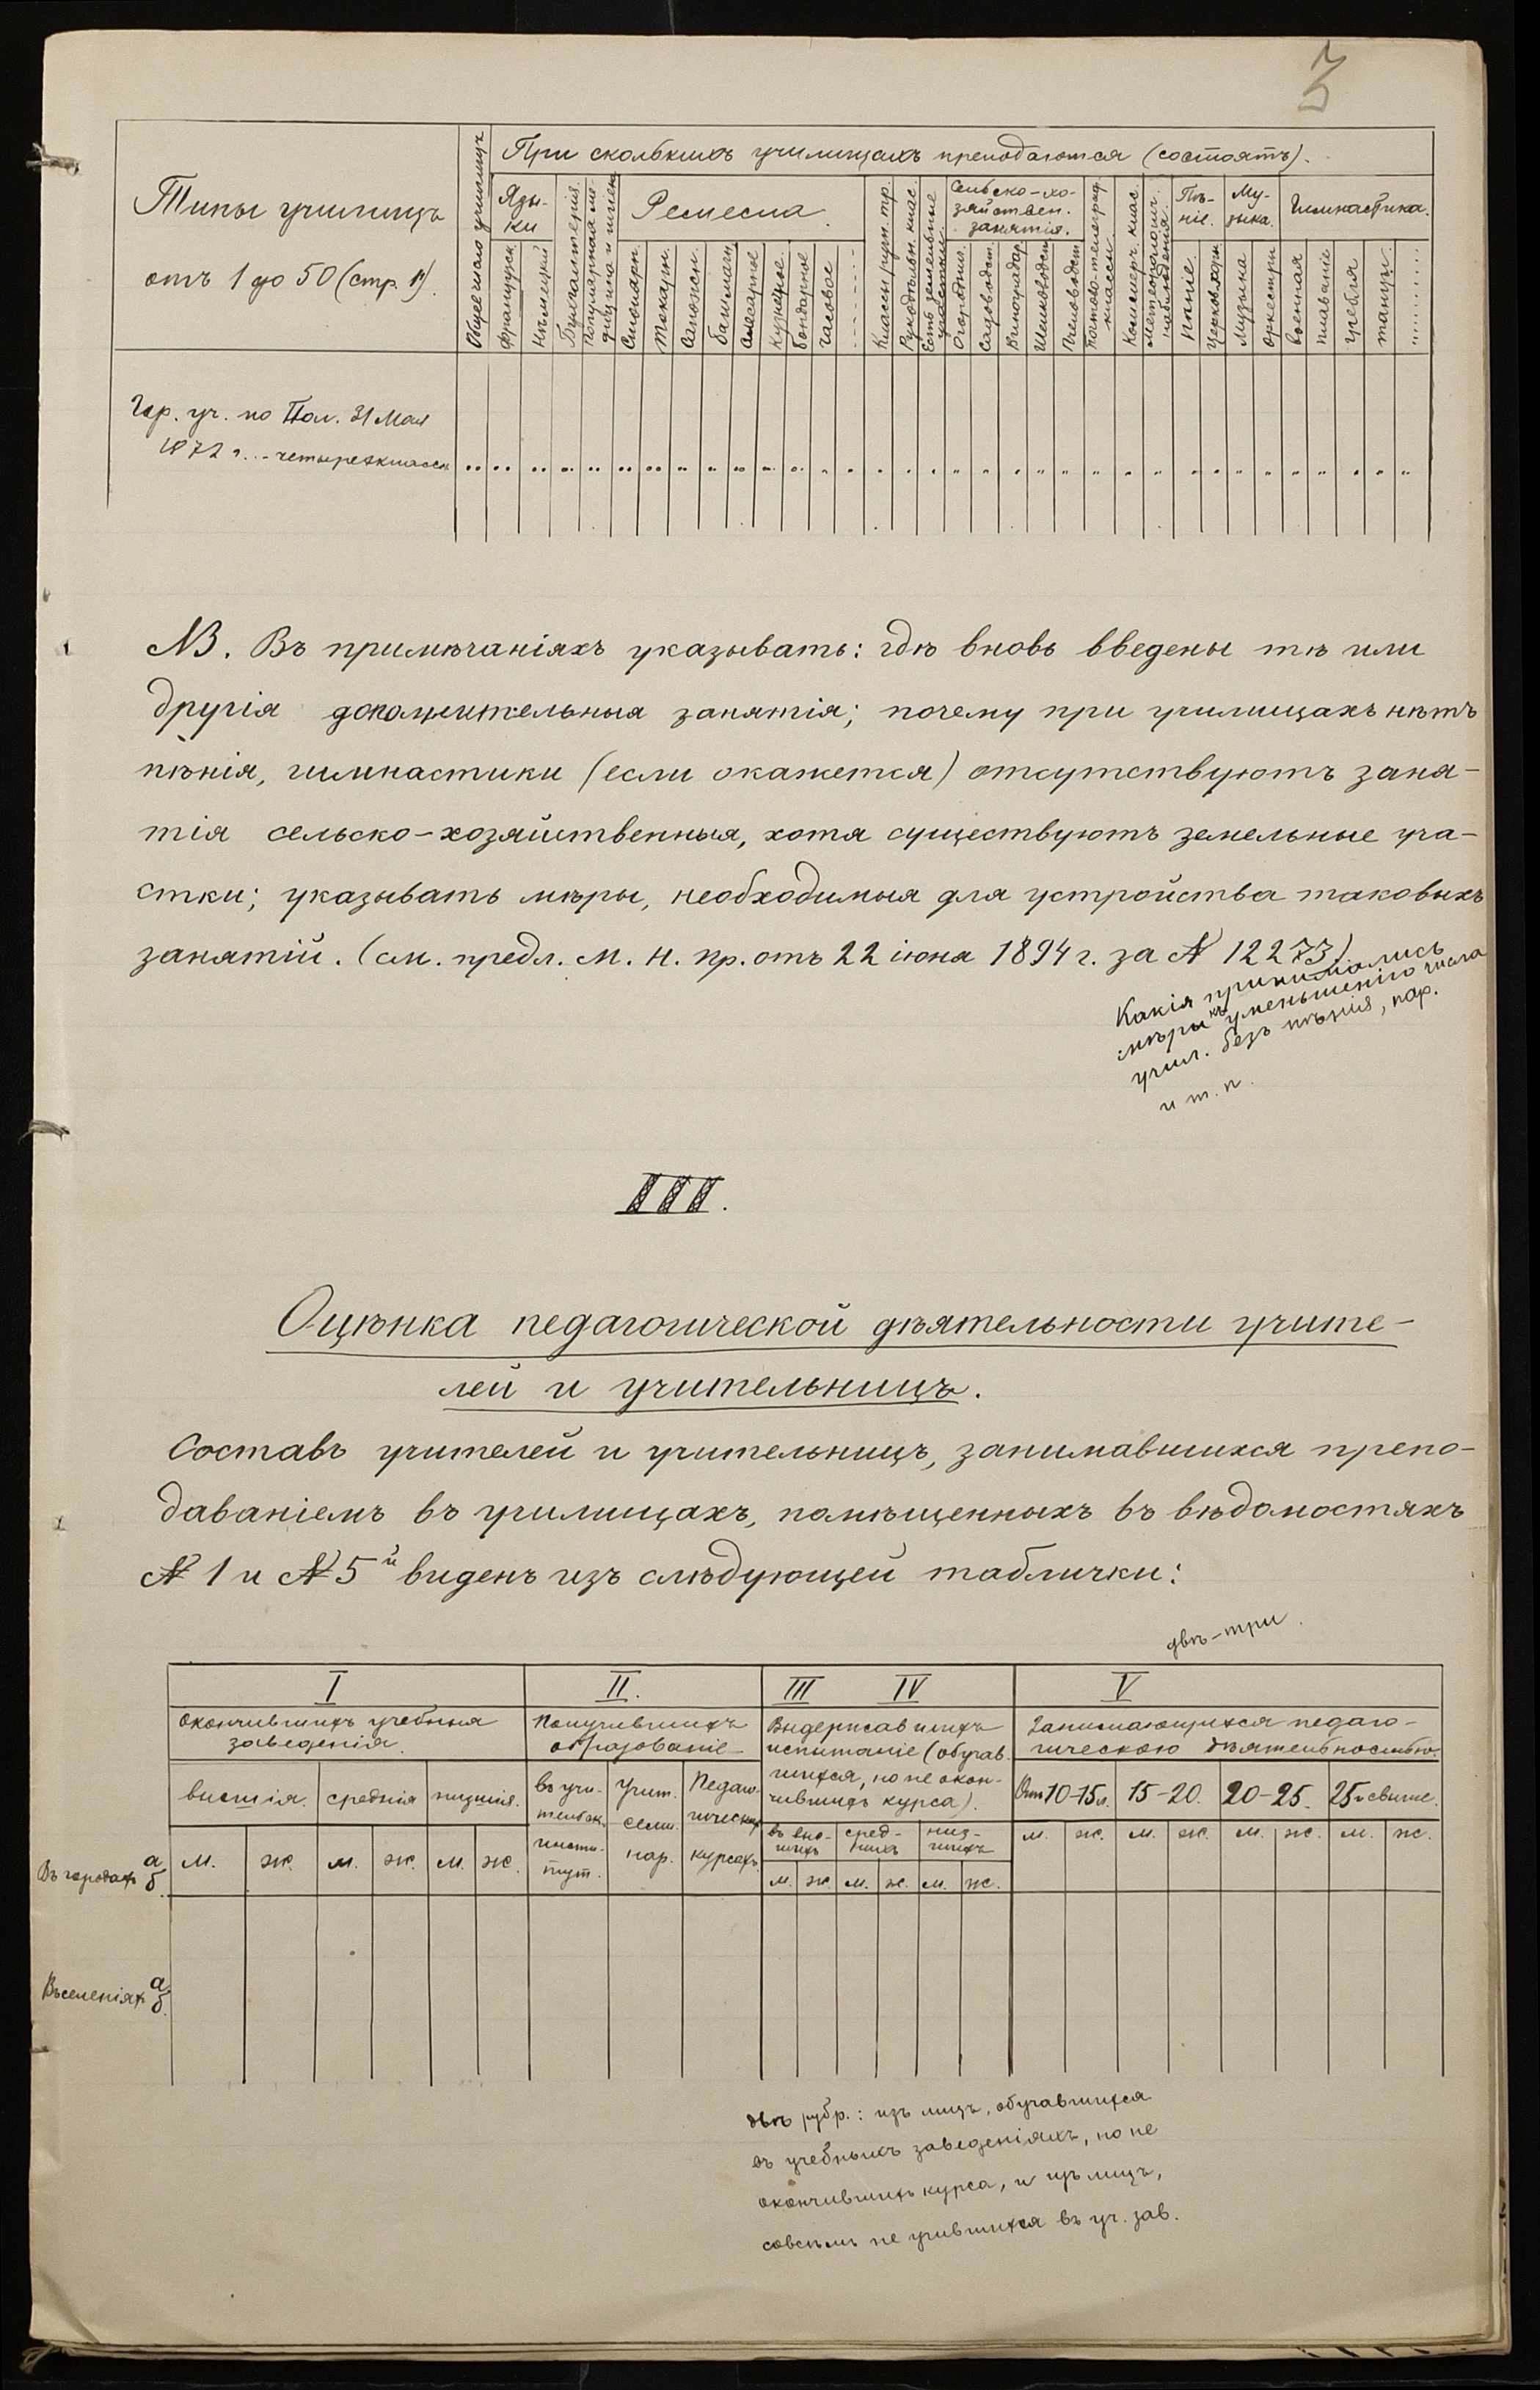 3
При сколькихъ училищахъ преподаются (состоятъ).
Типы училищъ
отъ 1 до 50 (стр. 1).
Общее число училищъ
Язы-
ки
Французск.
Нѣмецкій
Бухгалтерія.
Популярная ме-
дицина и гигіена
Ремесла
Столярн.
Токарн.
Сапожн.
башмачн.
Слесарное
Кузнечное
бондарное
часовое
Классы ручн. тр.
Рукодѣльн. клас
Есть земельные
участки
Сельско-хо-
зяйствен.
занятія.
Огородно.
Садоводст.
Виноградар
Шелководст
Пчеловодст
Почтово-телеграф.
классы
Коммерч. клас.
Метеоролог.
наблюденія.
Пѣ-
ніе.
Пѣніе
Церков. хоры
Му-
зыка.
Музыка
Оркестры
Гимнастика.
военная
плаваніе
гребля
танцы
Гор. уч. по Пол. 31 Мая
1872 г... четырехклассн
NB. Въ примѣчаніяхъ указывать: гдѣ вновь введены тѣ или
другія дополнительныя занятія; почему при училищахъ нѣтъ
пѣнія, гимнастики (если окажется) отсутствуютъ заня-
тія сельско-хозяйственныя, хотя существуютъ земельные уча-
стки; указывать мѣры, необходимыя для устройства таковыхъ
занятій. (см. предл. М. Н. Пр. отъ 22 іюня 1894 г. за № 12273)
Какія принимались
мѣры къ уменьшенію числа
учил. безъ пѣнія, нар.
и т. п.
III.
Оцѣнка педагогической дѣятельности учите-
лей и учительницъ.
Составъ учителей и учительницъ, занимавшихся препо-
даваніемъ въ училищахъ, помѣщенныхъ въ вѣдомостяхъ
№ 1 и № 5й виденъ изъ слѣдующей таблички:
двѣ-три.
I II. III IV V
Окончившихъ учебныя
заведенія.
высшія. среднія низшія.
м. ж. м. ж. м. ж.
Получившихъ
образованіе
въ учи-
тельск.
инсти-
тут.
Учит.
семи.
нар.
Педаго-
гическихъ
курсахъ.
Выдержавшихъ
испытаніе (обучав.
шихся, но не окон-
чившихъ курса).
въ выс-
шихъ
сред-
нихъ
низ-
шихъ
м. ж. м. ж. м. ж.
Занимающихся педаго-
гическою дѣятельностью.
От 10-15 л. 15-20. 20-25. 25 и свыше.
м. ж. м. ж. м. ж. м. ж.
Въ городахъ а
б.
Въ селеніяхъ а
б.
двѣ рубр.: изъ лицъ, обучавшихся
въ учебныхъ заведеніяхъ, но не
окончившихъ курса, и изъ лицъ,
совсѣмъ не учившихся въ уч. зав.